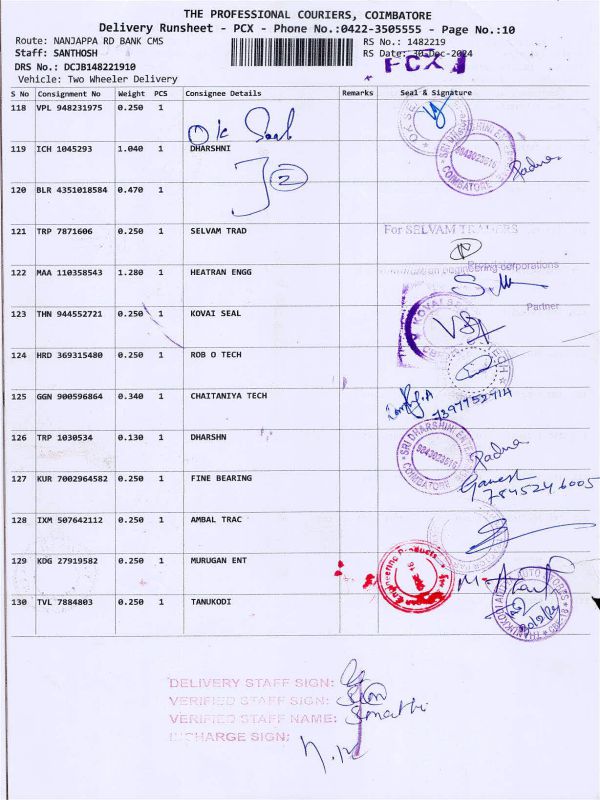 THE PROFESSIONAL COURIERS, COIMBATORE
Delivery Runsheet - PCX - Phone No.:0422-3505555 - Page No.:10
Route: NANJAPPA RD BANK CMS RS No.: 1482219
Staff: SANTHOSH RS Date: 30-Dec-2024
DRS No.: DCJB148221910 PCX 1
Vehicle: Two Wheeler Delivery
S No Consignment No Weight PCS Consignee Details Remarks Seal & Signature
118 VPL 948231975 0.250 1
OK Seal
119 ICH 1045293 1.040 1 DHARSHNI
SRI DHARSHINI ENTER 9843023616 COIMBATORE Padma
2
120 BLR 4351018584 0.470 1
121 TRP 7871606 0.250 1 SELVAM TRAD For SELVAM TRADERS
122 MAA 110358543 1.280 1 HEATRAN ENGG engineering corporations
Partner
123 THN 944552721 0.250 1 KOVAI SEAL KOVAI SE
124 HRD 369315480 0.250 1 ROB O TECH TECH
125 GGN 900596864 0.340 1 CHAITANIYA TECH 7397752714
126 TRP 1030534 0.130 1 DHARSHN SRI DHARSHINI ENTER 9843023616 COIMBATORE Padma
127 KUR 7002964582 0.250 1 FINE BEARING Ganesh
7845246005
128 IXM 507642112 0.250 1 AMBAL TRAC
129 KDG 27919582 0.250 1 MURUGAN ENT Engineering Products
130 TVL 7884803 0.250 1 TANUKODI
DELIVERY STAFF SIGN:
VERIFIED STAFF SIGN:
VERIFIED STAFF NAME: Sumathi
INCHARGE SIGN: